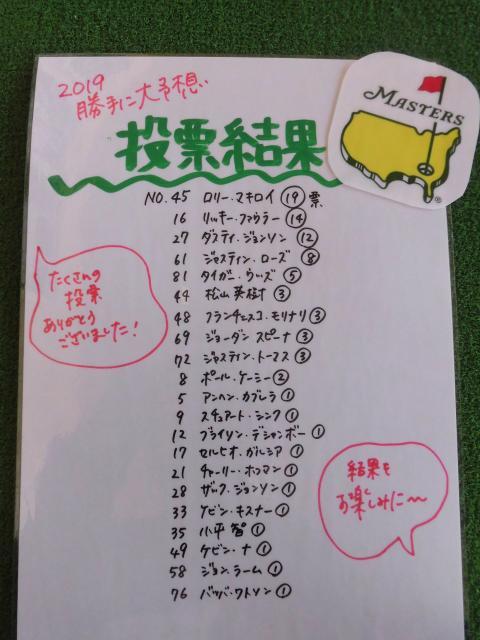 2019
勝手に大予想
投票結果
MASTERS
NO.45 ロリー・マキロイ 19 票
16 リッキー・ファウラー 14
27 ダスティ・ジョンソン 12
61 ジャスティン・ローズ 8
81 タイガー・ウッズ 5
44 松山 英樹 3
48 フランチェスコ・モリナリ 3
69 ジョーダン スピーナ 3
72 ジャスティン・トーマス 3
8 ポール・ケーシー 2
5 アンヘン・カブレラ 1
9 スチュアート・シンク 1
12 ブライソン・デシャンボー 1
17 セルヒオ・ガルシア 1
21 チャーリー・ホフマン 1
28 ザック・ジョンソン 1
33 ケビン・キスナー 1
35 小平 智 1
49 ケビン・ナ 1
58 ジョン・ラーム 1
76 バッバ・ワトソン 1
たくさんの
投票
ありがとう
ございました!
結果を
お楽しみに〜